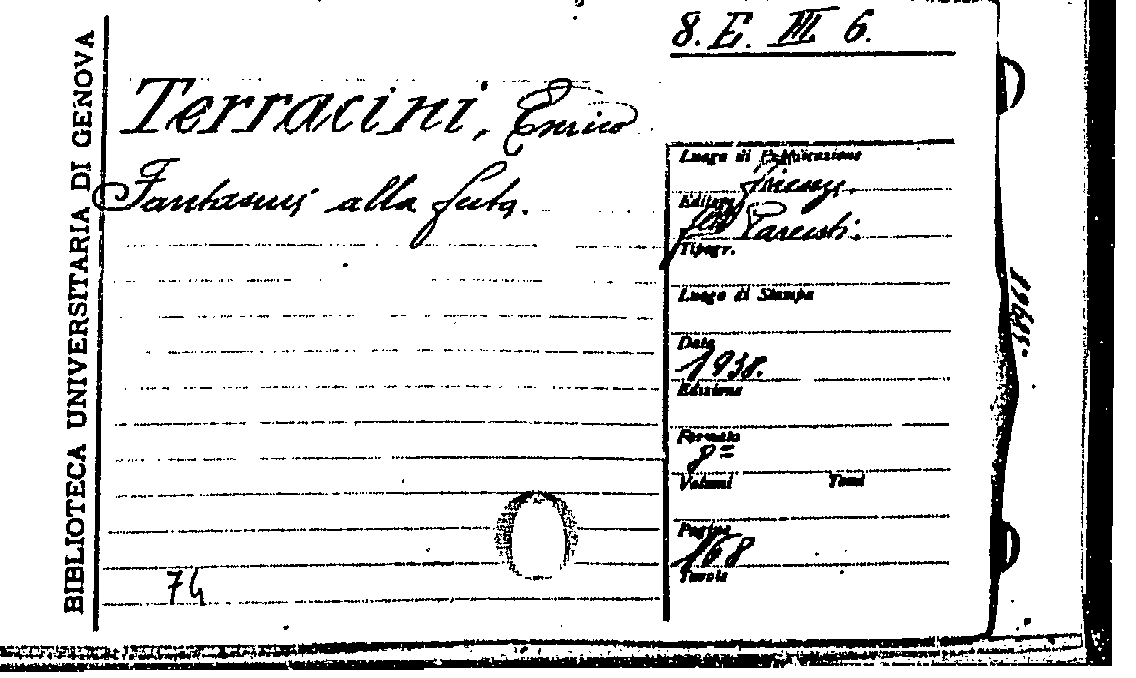 BIBLIOTECA UNIVERSITARIA DI GENOVA
8. E. III 6.
Terracini, Enrico
Fantasmi alla
74
Luogo di Pubblicazione
Firenze.
Editore
Parenti.
Tipogr.
Luogo di Stampa
Data
1938.
Edizione
Formato
8º
Volumi Tomi
Pagine
168
Tavole